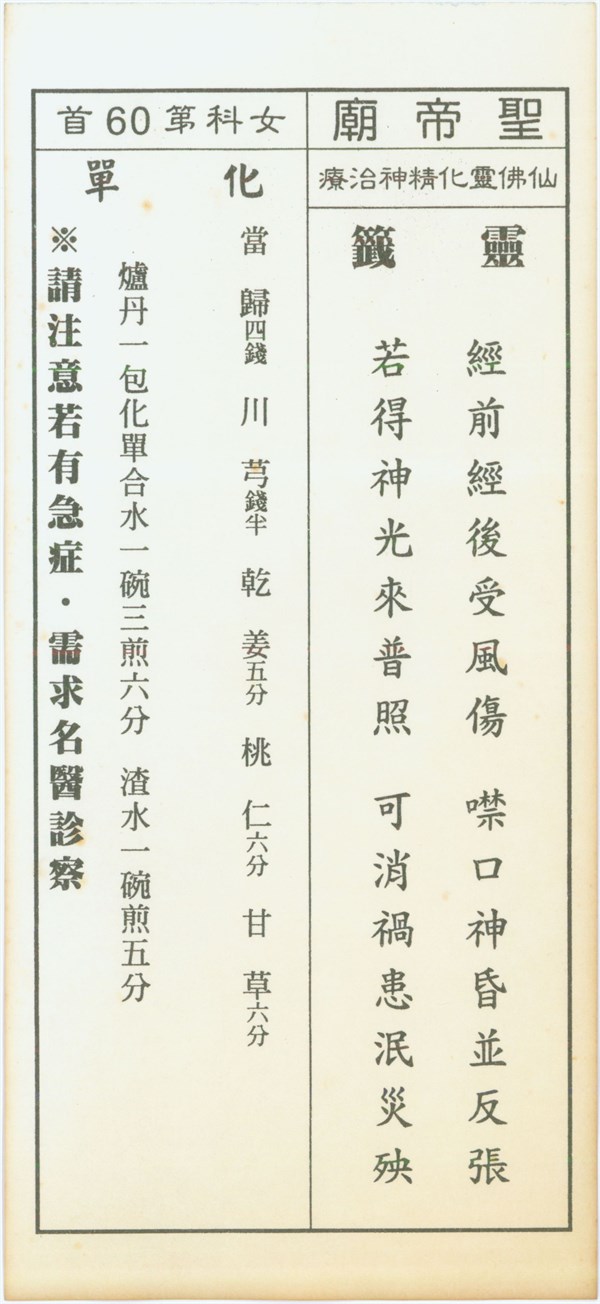 聖帝廟
仙佛靈化精神治療
靈籤
經前經後受風傷　噤口神昏並反張
若得神光來普照　可消禍患泯災殃
女科第60首
化單
當歸四錢　川芎錢半　乾姜五分　桃仁六分　甘草六分
爐丹一包化單合水一碗三煎六分　渣水一碗煎五分
※請注意若有急症・需求名醫診察